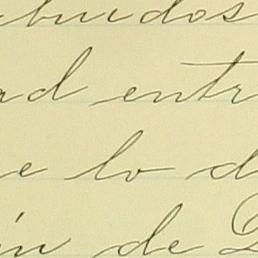 ibuidos
ad entr
e lo d
ón de D